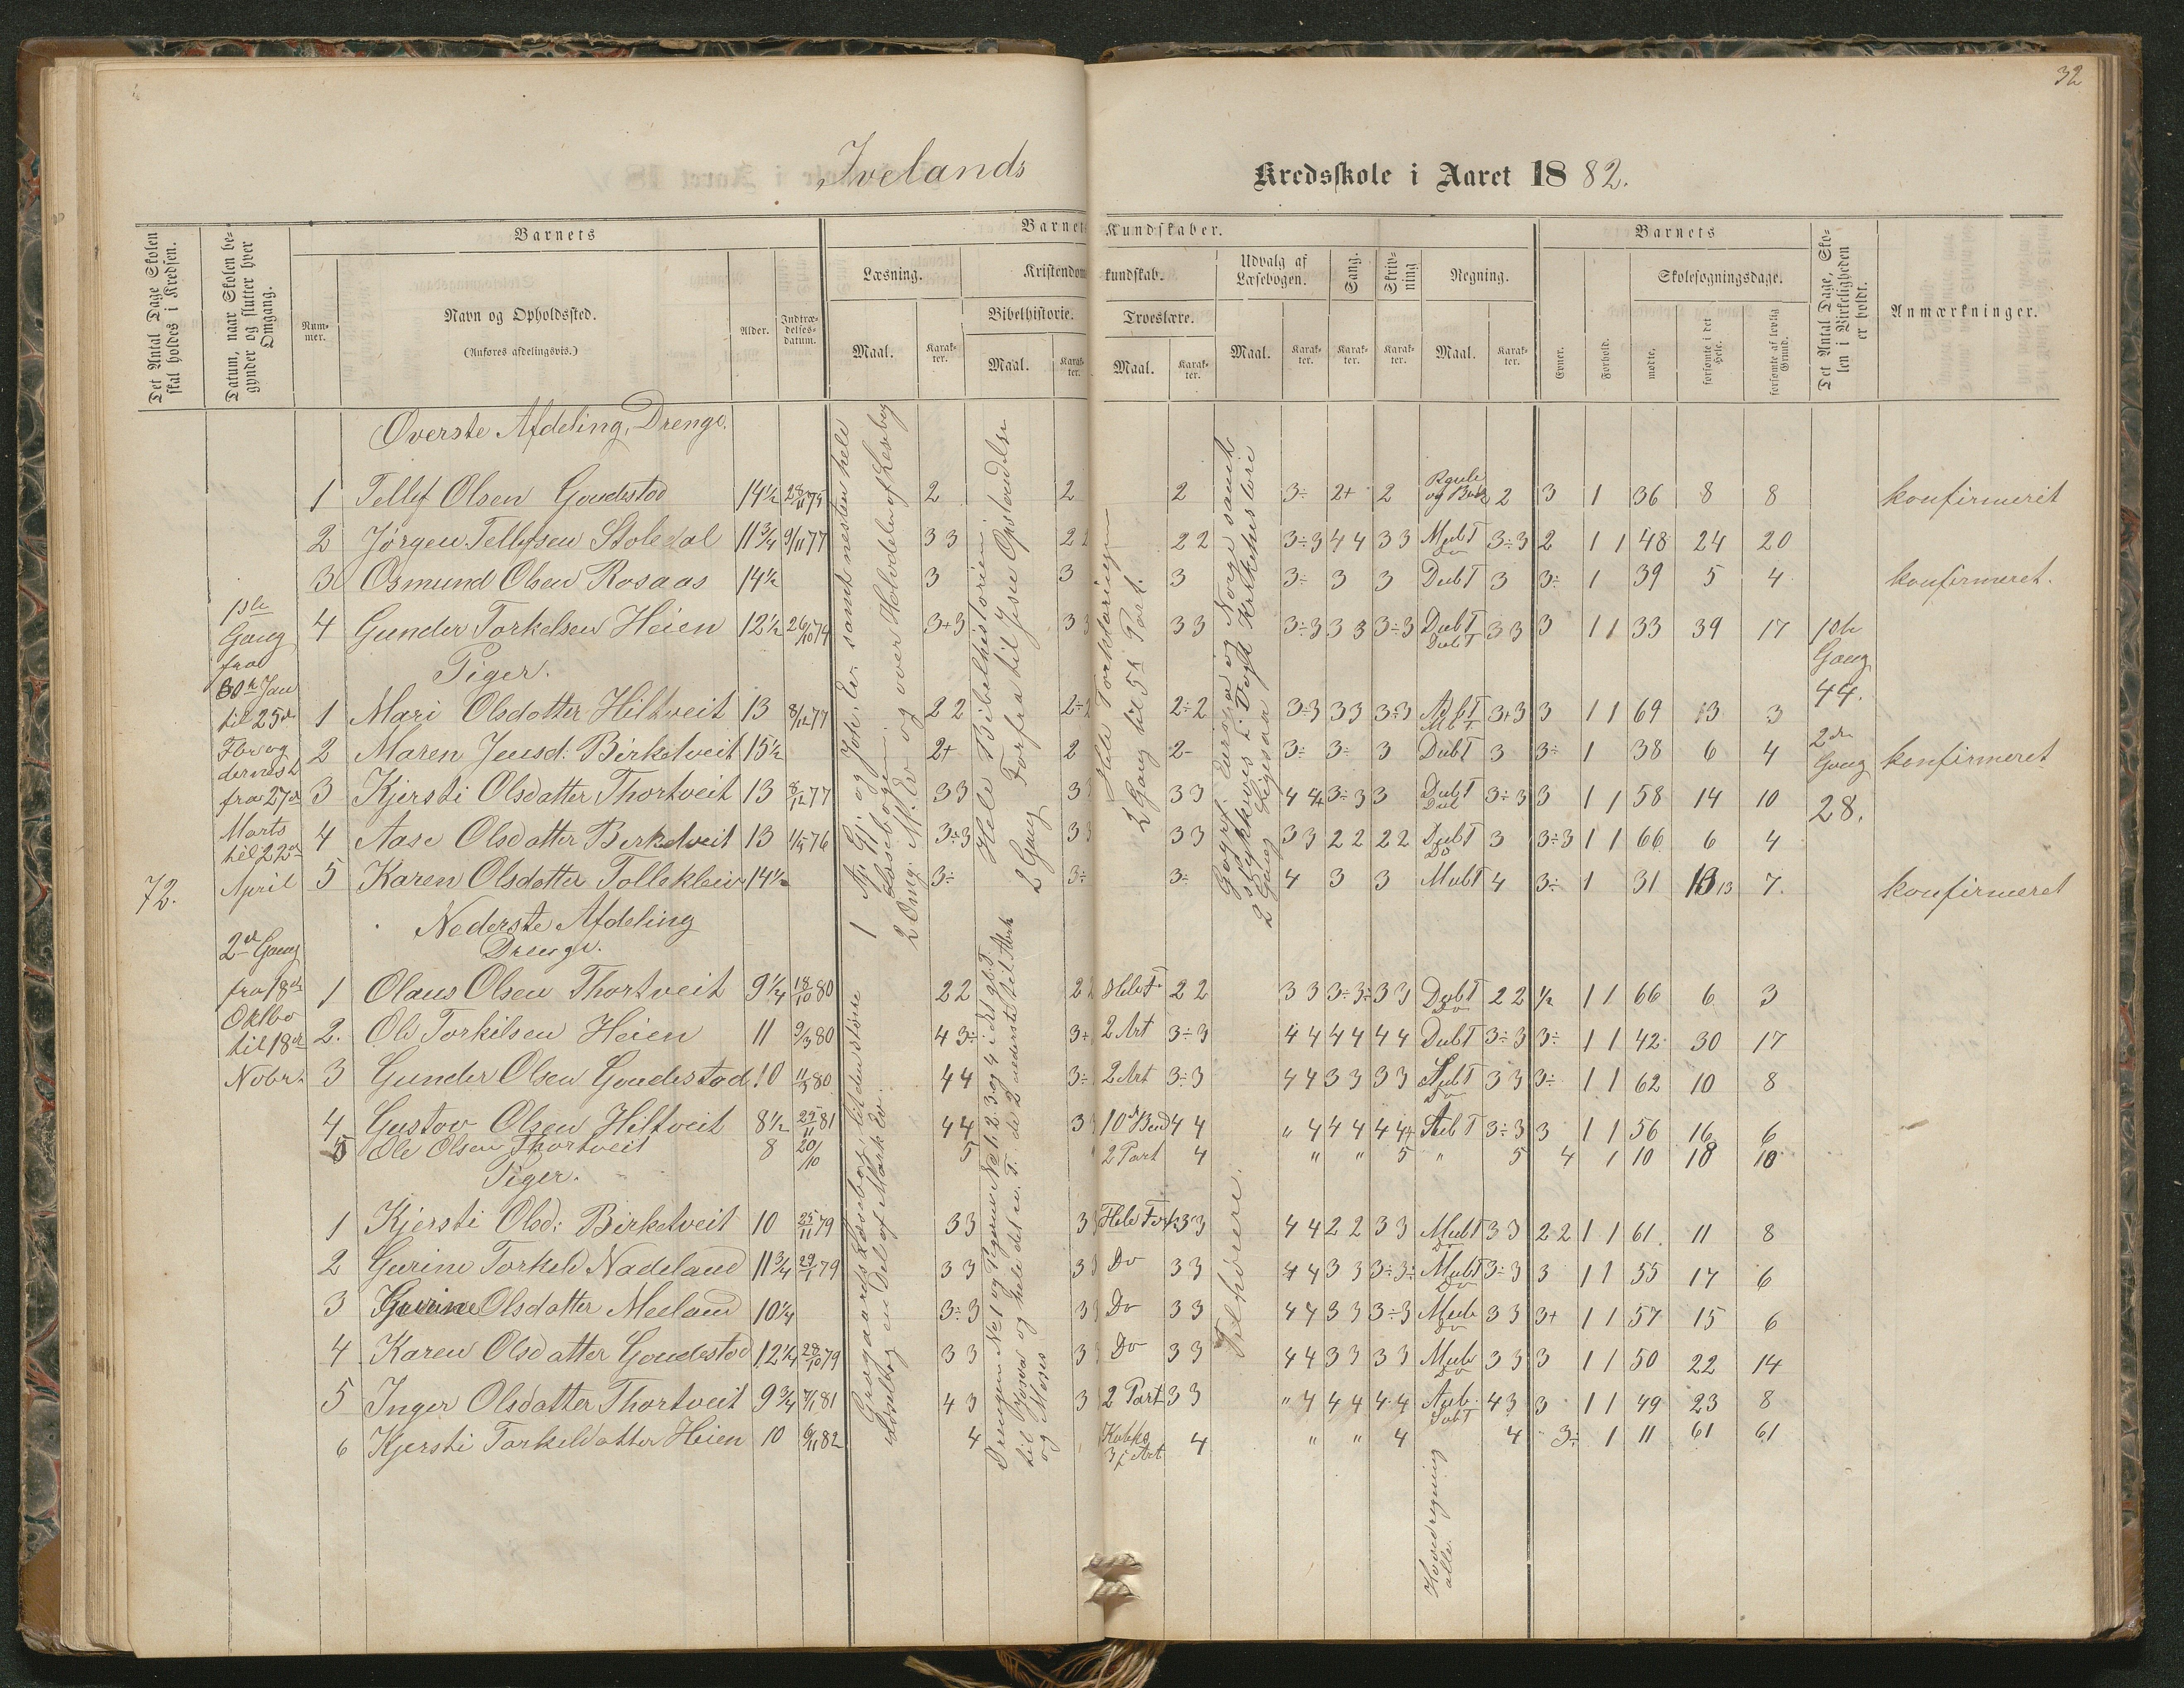 32
Ivelands Kredsskole i Aaret 1882.
Det Antal Dage Skolen skal holdes i Kredsen.
Datum, naar Skolen begynder og slutter hver Omgang.
Barnets
Nummer.
Navn og Opholdssted.
(Anføres afdelingsvis.)
Alder.
Indtrædelsesdatum.
Barnets Kundskaber.
Læsning.
Maal.
Karakter.
Kristendomskundskab.
Bibelhistorie.
Maal.
Karakter.
Troeslære.
Maal.
Karakter.
Udvalg af Læsebogen.
Maal.
Karakter.
Sang.
Karakter.
Skrivning
Karakter.
Regning.
Maal.
Karakter.
Barnets
Evner.
Forhold.
Skolesøgningsdage.
mødte.
forsømte i det Hele.
forsømte af lovlig Grund.
Det Antal Dage, Skolen i Virkeligheden er holdt.
Anmærkninger.
Øverste Afdeling, Drenge.
1 Tellef Olsen Goudestad 14½ 2 2 2 3÷ 2+ 2 2 3 1 36 8 8 konfirmeret
2 Jørgen Tellefsen Stoledal 11¾ 9/11 77 3 3 2 2 2 2 3÷3 4 4 3 3 MubT Do 3÷3 2 1 1 48 24 20
3 Osmund Olsen Rosaas 14½ 3 3 3 3÷ 3 3 DubT 3 3÷ 1 39 5 4 konfirmeret.
4 Gunder Torkelsen Heien 12½ 26/10 74 3+3 3 3 3 3 3÷3 3 3 3÷3 DubT DubT 3 3 3 1 1 33 39 17
Piger.
1 Mari Olsdotter Hiltveit 13 8/12 77 2 2 2÷2 2÷2 3÷3 3 3 3÷3 MbT 3+3 3 1 1 69 13 3
2 Maren Jensd: Birketveit 15½ 2+ 2 2- 3÷ 3÷ 3 DubT 3 3÷ 1 38 6 4 konfirmeret
3 Kjersti Olsdatter Thortveit 13 8/12 77 3 3 3 3 3 3 4 4 3÷3 3 DubT 3÷3 3 1 1 58 14 10
4 Aase Olsdatter Birketveit 13 76 3÷3 3 3 3 3 3 3 2 2 2 2 DubT Do 3 3÷3 1 1 66 6 4
5 Karen Olsdatter Tolleklev 14½ 3÷ 3÷ 3÷ 4 3 3 MubT 4 3÷ 1 31 13 7. konfirmeret
72.
1ste Gang fra 30te Jan til 25de Fbr og dernæst fra 27de Marts til 22de April
2de Gang fra 18de Oktbr til 18de Nobr.
1ste Gang 44.
2den Gang 28.
Nederste Afdeling
Drenge.
1 Olaus Olsen Thortveit 9¼ 18/10 80 2 2 2 2 Hele F. 2 2 3 3 3÷3÷ 3 3 DubT Do 2 2 ½ 1 1 66 6 3
2. Ole Torkilsen Heien 11 9/3 80 4 3÷ 3÷ 2 Art 3÷3 4 4 4 4 4 4 DubT 3÷3 3÷ 1 1 42 30 17
3 Gunder Olsen Goudestad 10 11/3 80 4 4 3÷ 2 Art 3÷3 4 4 3 3 3 3 Do 3 3 3÷ 1 1 62 10 8
4 Gustav Olsen Hiltveit 8½ 25/11 81 4 4 3 10de Bud 4 4 " 4 4 4 4 4 3÷3 3 1 1 56 16 6
5 Ole Olsen Thortveit 8 20/10 5 2 Part 4 " " 5 " 5 4 1 10 18 10
Piger.
1 Kjersti Olsd: Birketveit 10 25/11 79 3 3 3 Hele Fork 3 3 4 4 2 2 3 3 MubT Do 3 3 2 2 1 1 61. 11 8
2 Gurine Torkeld Nadeland 11¾ 79 3 3 3 Do 3 3 4 4 3 3 3÷3÷ MubT Do 3÷3 3 1 1 55 17 6
3 Gurine Olsdatter Meeland 10¼ 3÷3 3 3 Do 3 3 4 4 3 3 3÷3 Mub Do 3 3 3+ 1 1 57 15 6
4 Karen Olsdatter Goudestad 12¼ 28/10 79 3 3 3 Do 3 3 4 4 3 3 3 3 Mub Do 3 3 3 1 1 50 22 14
5 Inger Olsdatter Thortveit 9¾ 7/1 81 4 3 3 2 Part 3 3 " 4 4 4 4 4 Aub. SubT 4 3 3 1 1 49 23 8
6 Kjersti Torkildatter Heien 10 6/11 82 4 3 i Art 4 " " 4 4 3÷ 1 11 61 61
og Joh. Ev. samt nesten hele Læsebogen.
2 Omg. M. Ev og over Halvdelen af Lesebog
Hele Bibelhistorien
2 Gang Forfra til Jesu Opstandelse
Hele Forklaringen
2 Gang til 5te Part.
Geogr. Europa og Norge samt Stykkevis i Kirkehistorie
2 Gang Ligesaa
Læsebog, til den største Del af Mark Ev.
til Josva og hele det n. T. de 2 nederste til Abrah og Moses
Tilhørere.
Hovedregning alle.